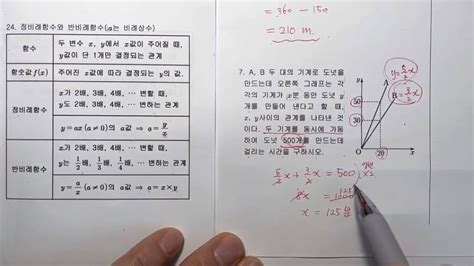 = 360 - 150
= 210 m.
24. 정비례함수와 반비례함수(a는 비례상수)
함수
두 변수 x, y에서 x값이 주어질 때,
y값이 단 1개만 결정되는 관계
함숫값 f(x)
주어진 x값에 따라 결정되는 y의 값.
정비례함수
x가 2배, 3배, 4배, … 변할 때,
y도 2배, 3배, 4배, … 변하는 관계
y=ax (a≠0)의 a값 ⇒ a=y/x
반비례함수
x가 2배, 3배, 4배, … 변할 때,
y는 1/2배, 1/3배, 1/4배, … 변하는 관계
y=a/x (a≠0)의 a값 ⇒ a=x×y
7. A, B 두 대의 기계로 도넛을
만드는데 오른쪽 그래프는 각
각의 기계가 x분 동안 도넛 y
개를 만들어 낸다고 할 때,
x, y사이의 관계를 나타낸 것
이다. 두 기계를 동시에 가동
하여 도넛 500개를 만드는데
걸리는 시간을 구하시오.
y
y=5/2x
A
B=3/2x
50
30
O
20
x
5/2x + 3/2x = 500
양변
×2
8x = 1000
125
x = 125분